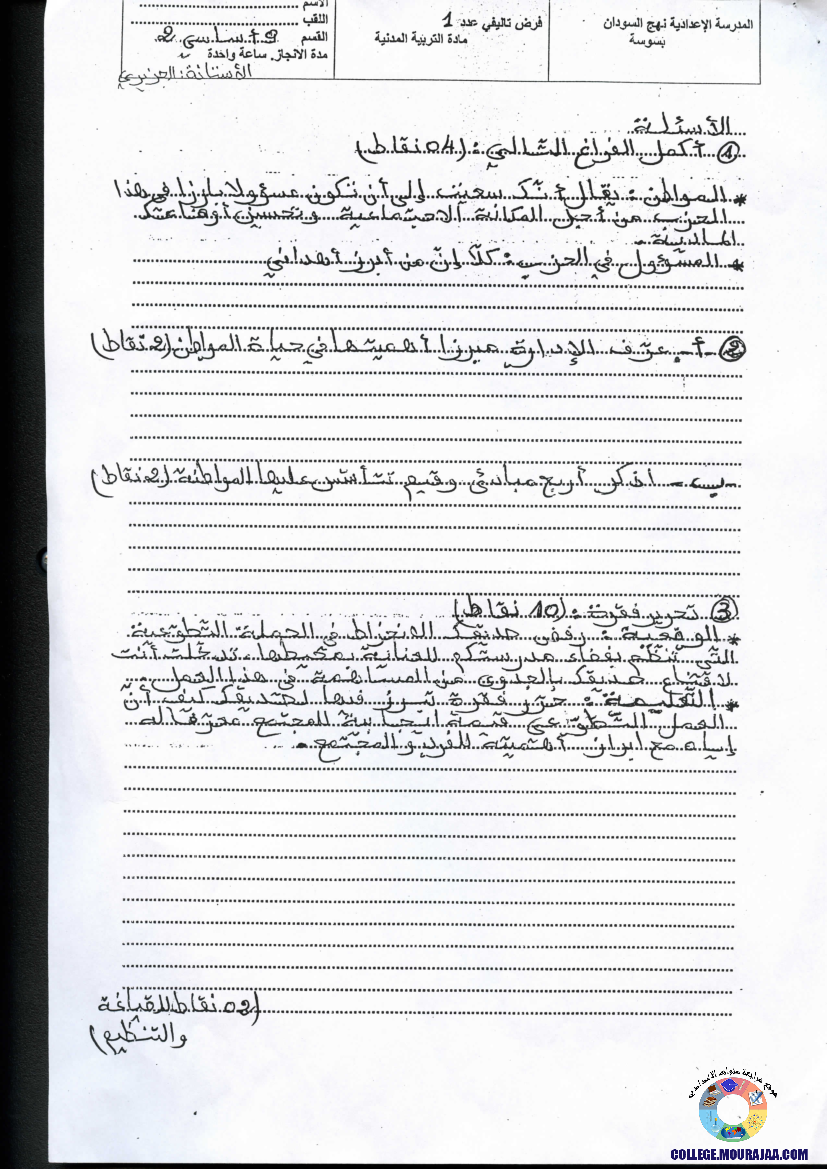 المدرسة الإعدادية نهج السودان
بسوسة
فرض تأليفي عدد 1
مادة التربية المدنية
الاسم
اللقب
القسم 9 أساسي 2
مدة الانجاز: ساعة واحدة
الأستاذة: الجزيري
الأسئلة
① أكمل الفراغ التالي: (04 نقاط)
* المواطن: يقال أنّك سعيت إلى أن تكون مسؤولا بارزا في هذا
الحزب من أجل المكانة الاجتماعية وتحسين أوضاعك
المادية.
* المسؤول في الحزب: كلّا إنّ من أبرز أهدافي
② - أ - عرّف الإدارة مبرزا أهميتها في حياة المواطن (2 نقاط)
- ب - اذكر أربع مبادئ وقيم تتأسّس عليها المواطنة (2 نقاط)
③ تحرير فقرة: (10 نقاط)
* الوضعية: رفض صديقك الانخراط في الحملة التطوّعية
التي تنظّم بفضاء مدرستكم للعناية بمحيطها، تدخّلت أنت
لاقناع صديقك بالجدوى من المساهمة في هذا العمل.
* التعليمة: حرّر فقرة تبرز فيها لصديقك كيف أنّ
العمل التطوّعي قيمة ايجابية للمجتمع معرّفا له
إياه مع ابراز أهميّته للفرد والمجتمع.
(02 نقاط للصياغة
والتنظيم)
موقع مراجعة
COLLEGE.MOURAJAA.COM